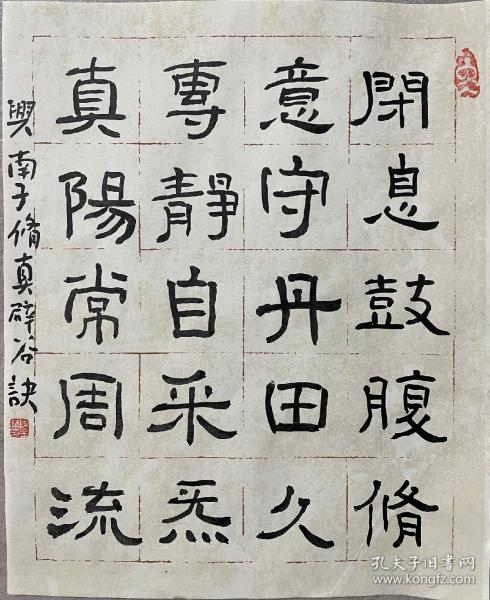 閉息鼓腹脩
意守丹田久
專靜自采炁
真陽常周流
興南子脩真辟谷訣
孔夫子旧书网
kongfz.com